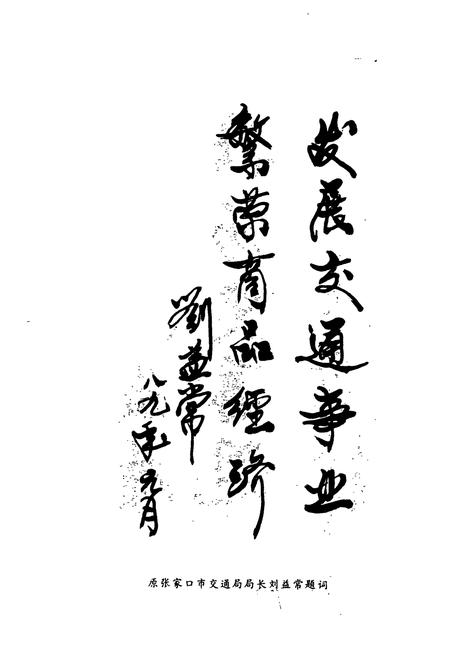 发展交通事业
繁荣商品经济
劉益常
八九年元月
原张家口市交通局局长刘益常题词